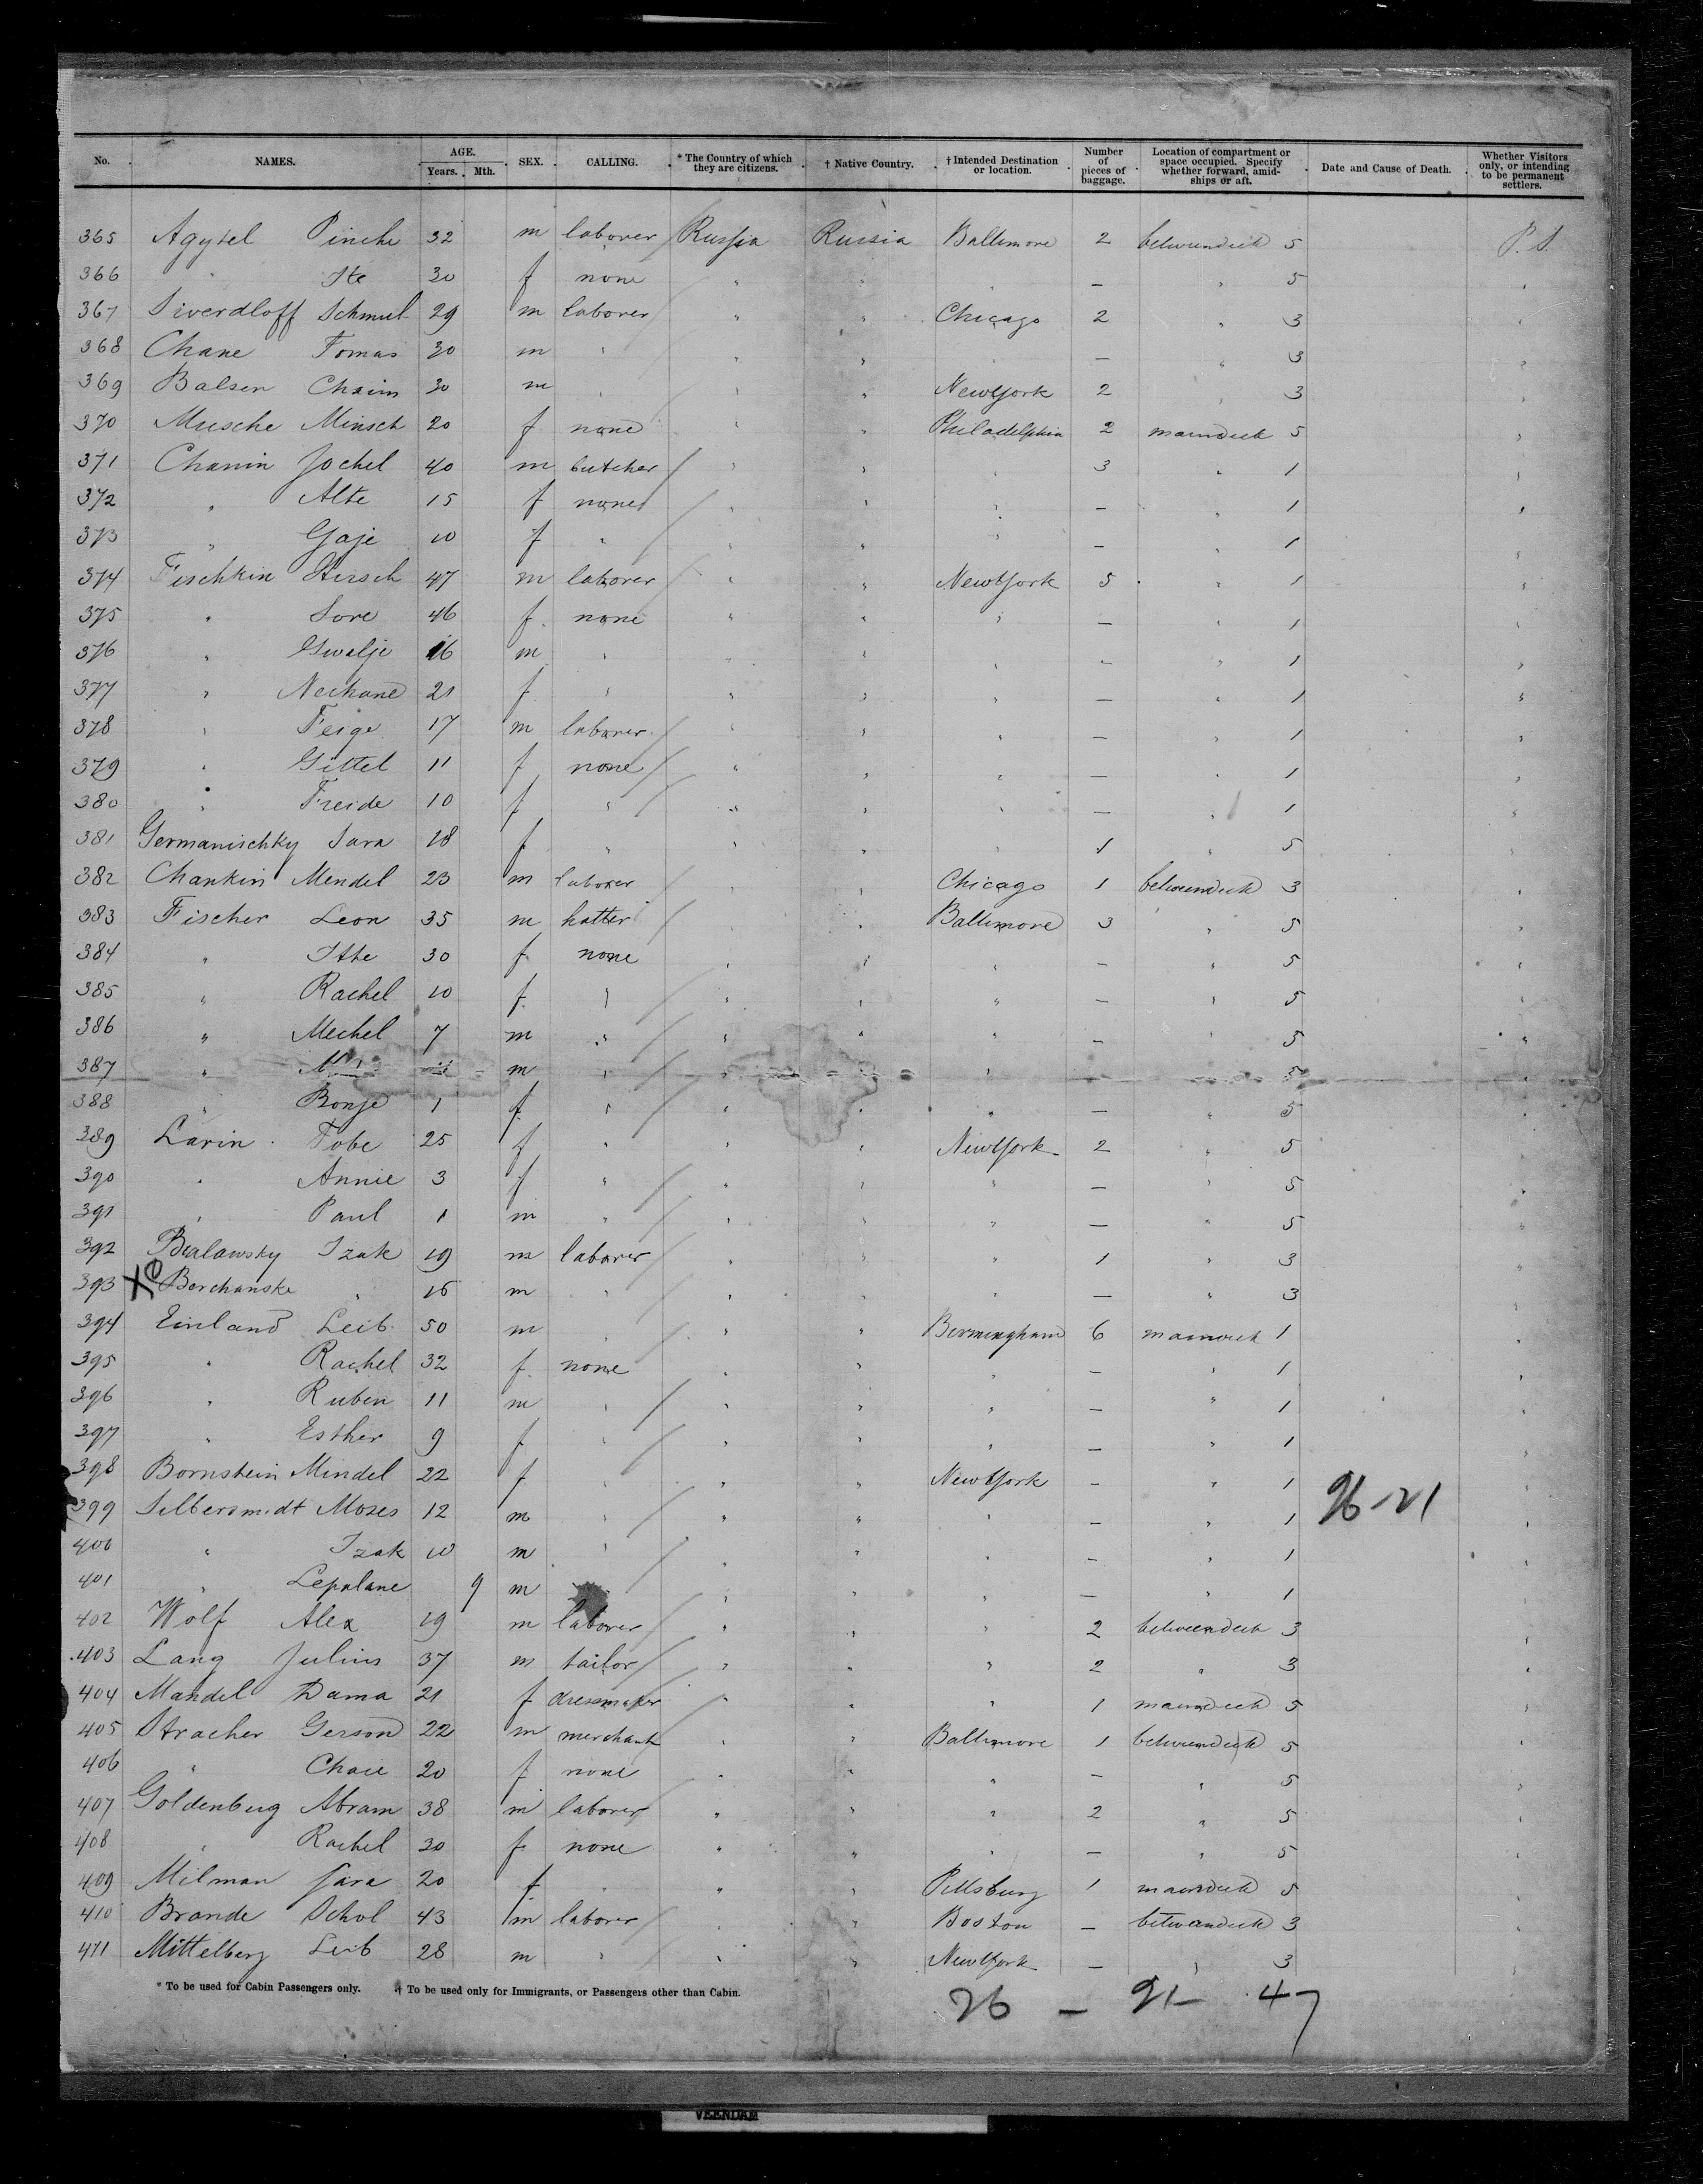 No. NAMES. AGE. Years. Mth. SEX. CALLING. * The Country of which they are citizens. † Native Country. † Intended Destination or location. Number of pieces of baggage. Location of compartment or space occupied. Specify whether forward, amidships or aft. Date and Cause of Death. Whether Visitors only, or intending to be permanent settlers.
365 Agytel Pinche 32 m laborer Russia Russia Baltimore 2 betweendeck 5 P.S.
366 " Ite 30 f none " " " — " 5 "
367 Siverdloff Schmul 29 m laborer " " Chicago 2 " 3 "
368 Chane Tomas 30 m " " " " — " 3 "
369 Balsen Chaim 30 m " " " New York 2 " 3 "
370 Musche Minsch 20 f none " " Philadelphia 2 maindeck 5 "
371 Chanin Jochel 40 m butcher " " " 3 " 1 "
372 " Alte 15 f none " " " — " 1 "
373 " Gaje 10 f " " " " — " 1 "
374 Fischkin Hirsch 47 m laborer " " New York 5 " 1 "
375 " Sore 46 f none " " " — " 1 "
376 " Gwalje 16 m " " " " — " 1 "
377 " Nechane 21 f " " " " — " 1 "
378 " Feige 17 m laborer " " " — " 1 "
379 " Gittel 11 f none " " " — " 1 "
380 " Freide 10 f " " " " — " 1 "
381 Germanischky Sara 18 f " " " " 1 " 5 "
382 Chankin Mendel 23 m laborer " " Chicago 1 betweendeck 3 "
383 Fischer Leon 35 m hatter " " Baltimore 3 " 5 "
384 " Itte 30 f none " " " — " 5 "
385 " Rachel 10 f " " " " — " 5 "
386 " Mechel 7 m " " " " — " 5 "
387 " m " " " " — " 5 "
388 " Bonje 1 f " " " " — " 5 "
389 Larin Tobe 25 f " " " New York 2 " 5 "
390 " Annie 3 f " " " " — " 5 "
391 " Paul 1 m " " " " — " 5 "
392 Bialawsky Izak 19 m laborer " " " 1 " 3 "
393 X Berchanske " 16 m " " " " — " 3 "
394 Einland Leib 50 m " " " Birmingham 6 maindeck 1 "
395 " Rachel 32 f none " " " — " 1 "
396 " Ruben 11 m " " " " — " 1 "
397 " Esther 9 f " " " " — " 1 "
398 Bornstein Mindel 22 f " " " New York — " 1 "
399 Silbersmidt Moses 12 m " " " " — " 1 96-21 "
400 " Izak 10 m " " " " — " 1 "
401 " Lepalane 9 m " " " — " 1 "
402 Wolf Alex 19 m laborer " " " 2 betweendeck 3 "
403 Lang Julius 37 m tailor " " " 2 " 3 "
404 Mandel Dama 21 f dressmaker " " " 1 maindeck 5 "
405 Stracher Gerson 22 m merchant " " Baltimore 1 betweendeck 5 "
406 " Chaie 20 f none " " " — " 5 "
407 Goldenburg Abram 38 m laborer " " " 2 " 5 "
408 " Rachel 30 f none " " " — " 5 "
409 Milman Sara 20 f " " " Pittsburg 1 maindeck 5 "
410 Brande Schol 43 m laborer " " Boston — betweendeck 3 "
411 Mittelberg Leib 28 m " " " New York — " 3 "
* To be used for Cabin Passengers only. † To be used only for Immigrants, or Passengers other than Cabin.
26 — 21 — 47
VEENDAM